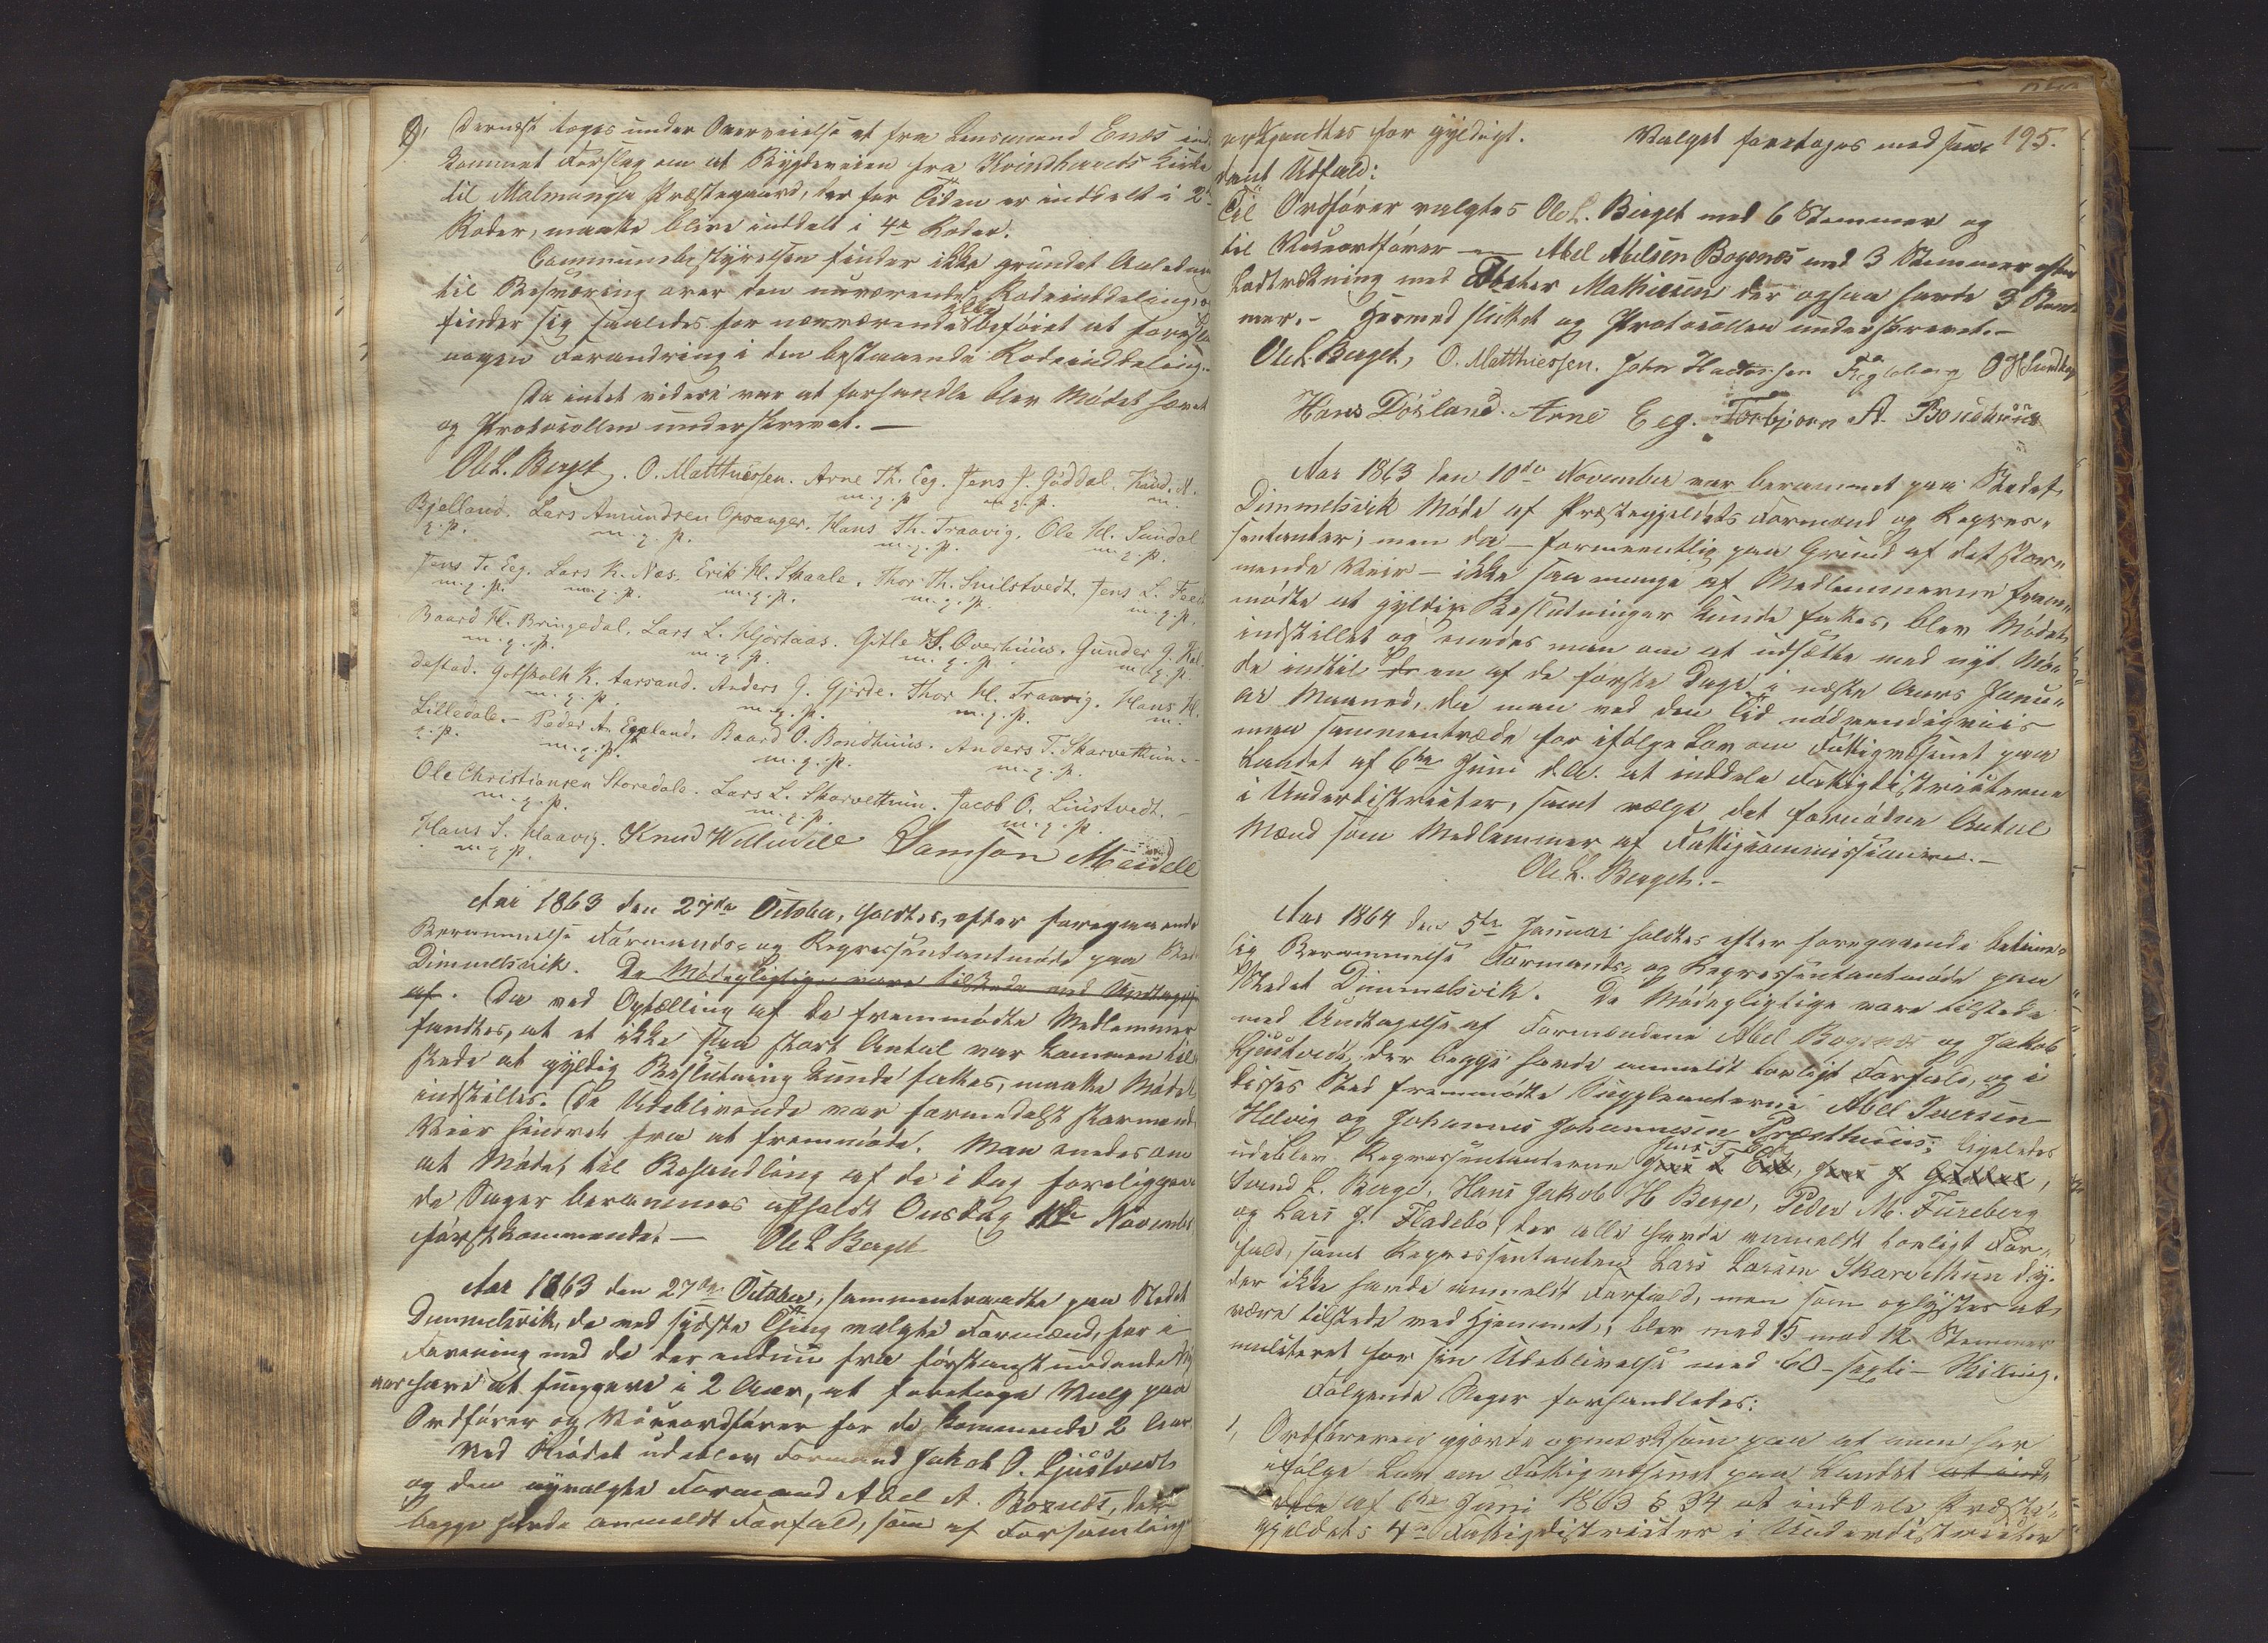 9, Dernæst toges under Overveielse et fra Lensmand Enæs ind-
kommet Forslag om at Bygdeveien fra Kvindherreds Kirke
til Malmanger Præstegaard, der for Tiden er inddelt i 2de
Roder, maatte blive inddelt i 4re Roder.
Communebestyrelsen finder ikke grundet Anledning
til Besværing over den nuværende Rodeinddeling, og
finder sig saaledes for nærværende ikke beføiet at foreslaa
nogen Forandring i den bestaaende Rodeinddeling.-
Da intet videre var at forhandle blev Mødet hævet
og Protocollen underskrevet. -
Ole L. Berget. O. Matthiessen. Arne Th. Eeg. Jens J. Guddal. Knud. N.
m.q.p. m.q.p. m.
Bjelland. Lars Amundsen Opsanger. Hans Th. Traavig. Ole Hl. Sundal
q.p. m.q.p. m.q.p. m.q.p.
Jens T. Eeg. Lars K. Næs. Erik H. Skaale. Thor Th. Guilstvedt. Jens L. Feed
m.q.p. m.q.p. m.q.p. m.q.p. m.q.p.
Baard H. Bringedal. Lars L. Hjortaas. Gitle S. Overhuus. Gunder G. Hal-
m.q.p. m.q.p. m.q.p. m.q.p.
destad. Gotskalk K. Aarsand. Anders J. Gjerde. Thor H. Traavig. Hans H.
m.q.p. m.q.p. m.q.p. m.
Lilledale. - Peder A. Eqeland. Baard O. Bondhuus. Anders T. Skarvethun. -
q.p. m.q.p. m.q.p. m.q.p.
Ole Christiansen Storedale. Lars L. Skarvethun. Jacob O. Liustvedt. -
m.q.p. m.q.p. m.q.p.
Hans S. Haavig. Knud Samson Meidell
m.q.p.
Aar 1863 den 27de October, holdtes, efter foregaaende
Berammelse Formands- og Repræsentantmøde paa Stedet
Dimmelsvik. De Mødepligtige vare tilstede med Undtagelse
af. Da ved Optælling af de fremmødte Medlemmer
fandtes, at et ikke saa stort Antal var kommen til-
stede at gyldig Beslutning kunde fattes, maatte Mødet
indstilles. De Udeblivende var formedelst stormende
Veir hindret fra at fremmøde. Man enedes om
at Mødet til Behandling af de i Dag foreliggen-
de Sager berammes afholdt Onsdag November
førstkommende. - Ole L Berget
Aar 1863 den 27de October, sammentraadte paa Stedet
Dimmelsvik, de ved sidste Thing valgte Formænd, for i
Forening med de der endnu fra
har at fungere i 2 Aar, at foretage Valg paa
Ordfører og Viceordfører for de kommende 2 Aar.
Ved Mødet udeblev Formand Jakob O. Ljustvedt
og den nyvalgte Formand Abel A. Bogenæs, der
begge havde anmeldt Forfald, som af Forsamlingen
195.
erkjendtes for gyldigt. Valget foretoges med saa-
dant Udfald:
Til Ordfører valgtes Ole L. Berget med 6 Stemmer og
til Viceordfører — Abel Abelsen Bogenæs med 3 Stemmer efter
Lodtrækning med Mathiesen der ogsaa havde 3 Stem-
mer. - Hermed sluttet og Protocollen underskrevet. -
Ole L. Berget, O. Matthiessen. John Haktorsen O H Sundal
Hans Døsland. Arne Eeg. Torbjørn A. Bondhuus
Aar 1863 den 10de November var berammet paa Stedet
Dimmelsvik Møde af Præstegjeldets Formænd og Repræ-
sentanter; men da - formeentlig paa Grund af det stor-
mende Veir - ikke saa mange af Medlemmerne frem-
mødte at gyldige Beslutninger kunde fattes, blev Mødet
indstillet og enedes man om at udsætte med nyt Mø-
de indtil de en af de første Dage i næste Aars Janu-
ar Maaned, da man ved den Tid nødvendigviis
maa sammentræde for ifølge Lov om Fattigvæsenet paa
Landet af 6te Juni d.A. at inddele Fattigdistricterne
i Underdistricter, samt vælge det fornødne Antal
Mænd som Medlemmer af Fattigcommissionen. -
Ole L. Berget. -
Aar 1864 den 5te Januar holdtes efter foregaaende betime-
lig Berammelse Formands- og Repræsentantmøde paa
Stedet Dimmelsvik. De Mødepligtige vare tilstede
med Undtagelse af Formændene Abel Bogenæs og Jakob
Ljustvedt, der begge havde anmeldt lovligt Forfald, og i
disses Sted fremmødte Suppleanterne Abel Iversen
Helvig og Johannes Johannesen Præsthuus; ligeledes
udeblev Repræsentanterne Jens T. Eeg, Jens J Guddal,
Svend L. Berge, Hans Jakob H Berge, Peder M. Fureberg
og Lars J. Fladebø, der alle havde anmeldt lovligt For-
fald, samt Repræsentanten Lars Larsen Skarvethun d.y.
der ikke havde anmeldt Forfald, men som oplystes at
være tilstede ved Hjemmet; blev med 15 mod 12 Stemmer
mulcteret for sin Udeblivelse med 60 - sexti - Skilling.
Følgende Sager forhandledes:
1, Ordføreren gjorde opmærksom paa at man har
ifølge Lov om Fattigvæsenet paa Landet at ind-
dele af 6te Juni 1863 § 34 at inddele Præste-
gjeldets 4re Fattigdistricter i Underdistricter